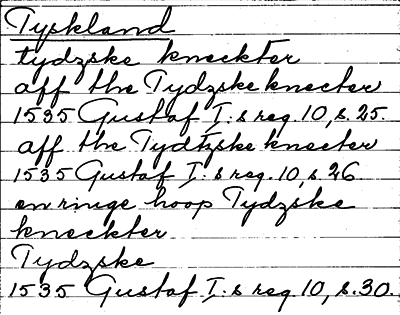 Tyskland
tydzske kneckter
aff the Tydzske knecter
1535 Gustaf I:s reg. 10, s. 25.
aff the Tydtzske knecter
1535 Gustaf I:s reg. 10, s 26
en ringe hoop Tydzske
kneckter
Tydzske
1535 Gustaf I:s reg 10, s. 30.